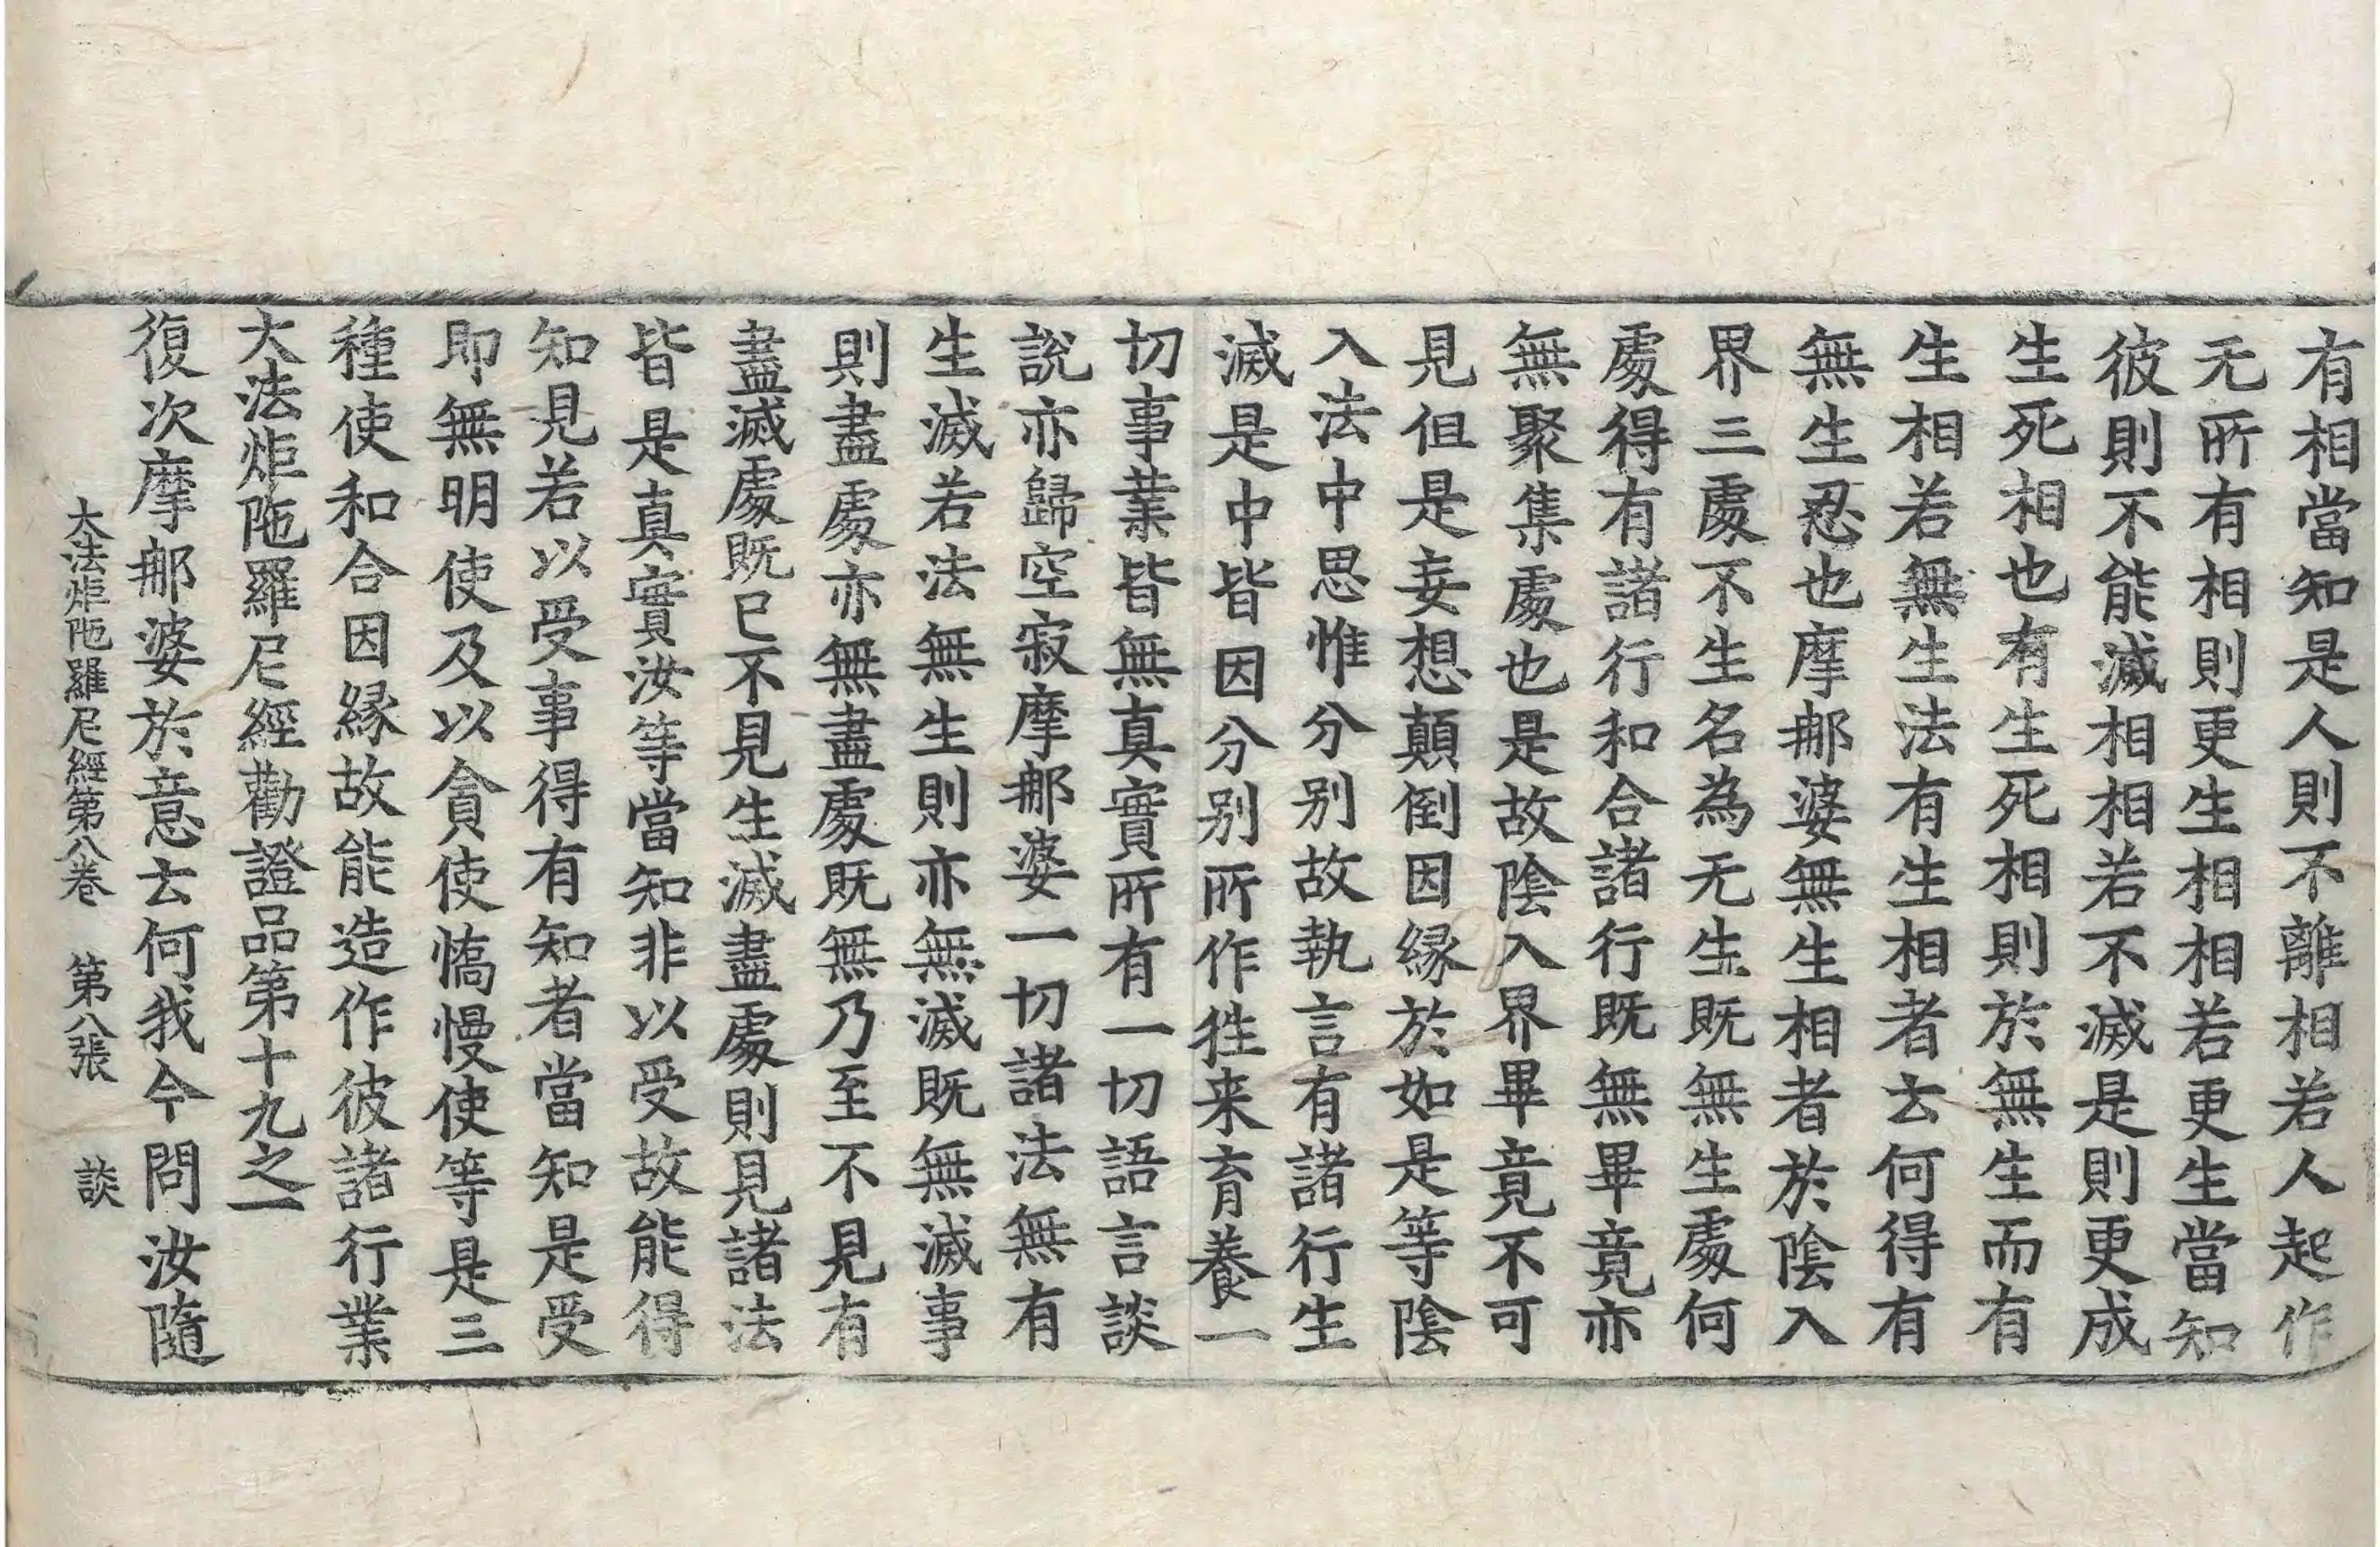 有相當知是人則不離相若人起作
无所有相則更生相相若更生當知
彼則不能滅相相若不滅是則更成
生死相也有生死相則於無生而有
生相若無生法有生相者云何得有
無生忍也摩那婆無生相者於陰入
界三處不生名為无生既無生處何
處得有諸行和合諸行既無畢竟亦
無聚集處也是故陰入界畢竟不可
見但是妄想顛倒因緣於如是等陰
入法中思惟分別故執言有諸行生
滅是中皆因分別所作徃来育養一
切事業皆無真實所有一切語言談
說亦歸空寂摩那婆一切諸法無有
生滅若法無生則亦無滅既無滅事
則盡處亦無盡處既無乃至不見有
盡滅處既已不見生滅盡處則見諸法
皆是真實汝等當知非以受故能得
知見若以受事得有知者當知是受
即無明使及以貪使憍慢使等是三
種使和合因緣故能造作彼諸行業
大法炬陁羅尼經勸證品第十九之一
復次摩那婆於意云何我今問汝隨
大法炬陁羅尼經第八卷 第八張 談